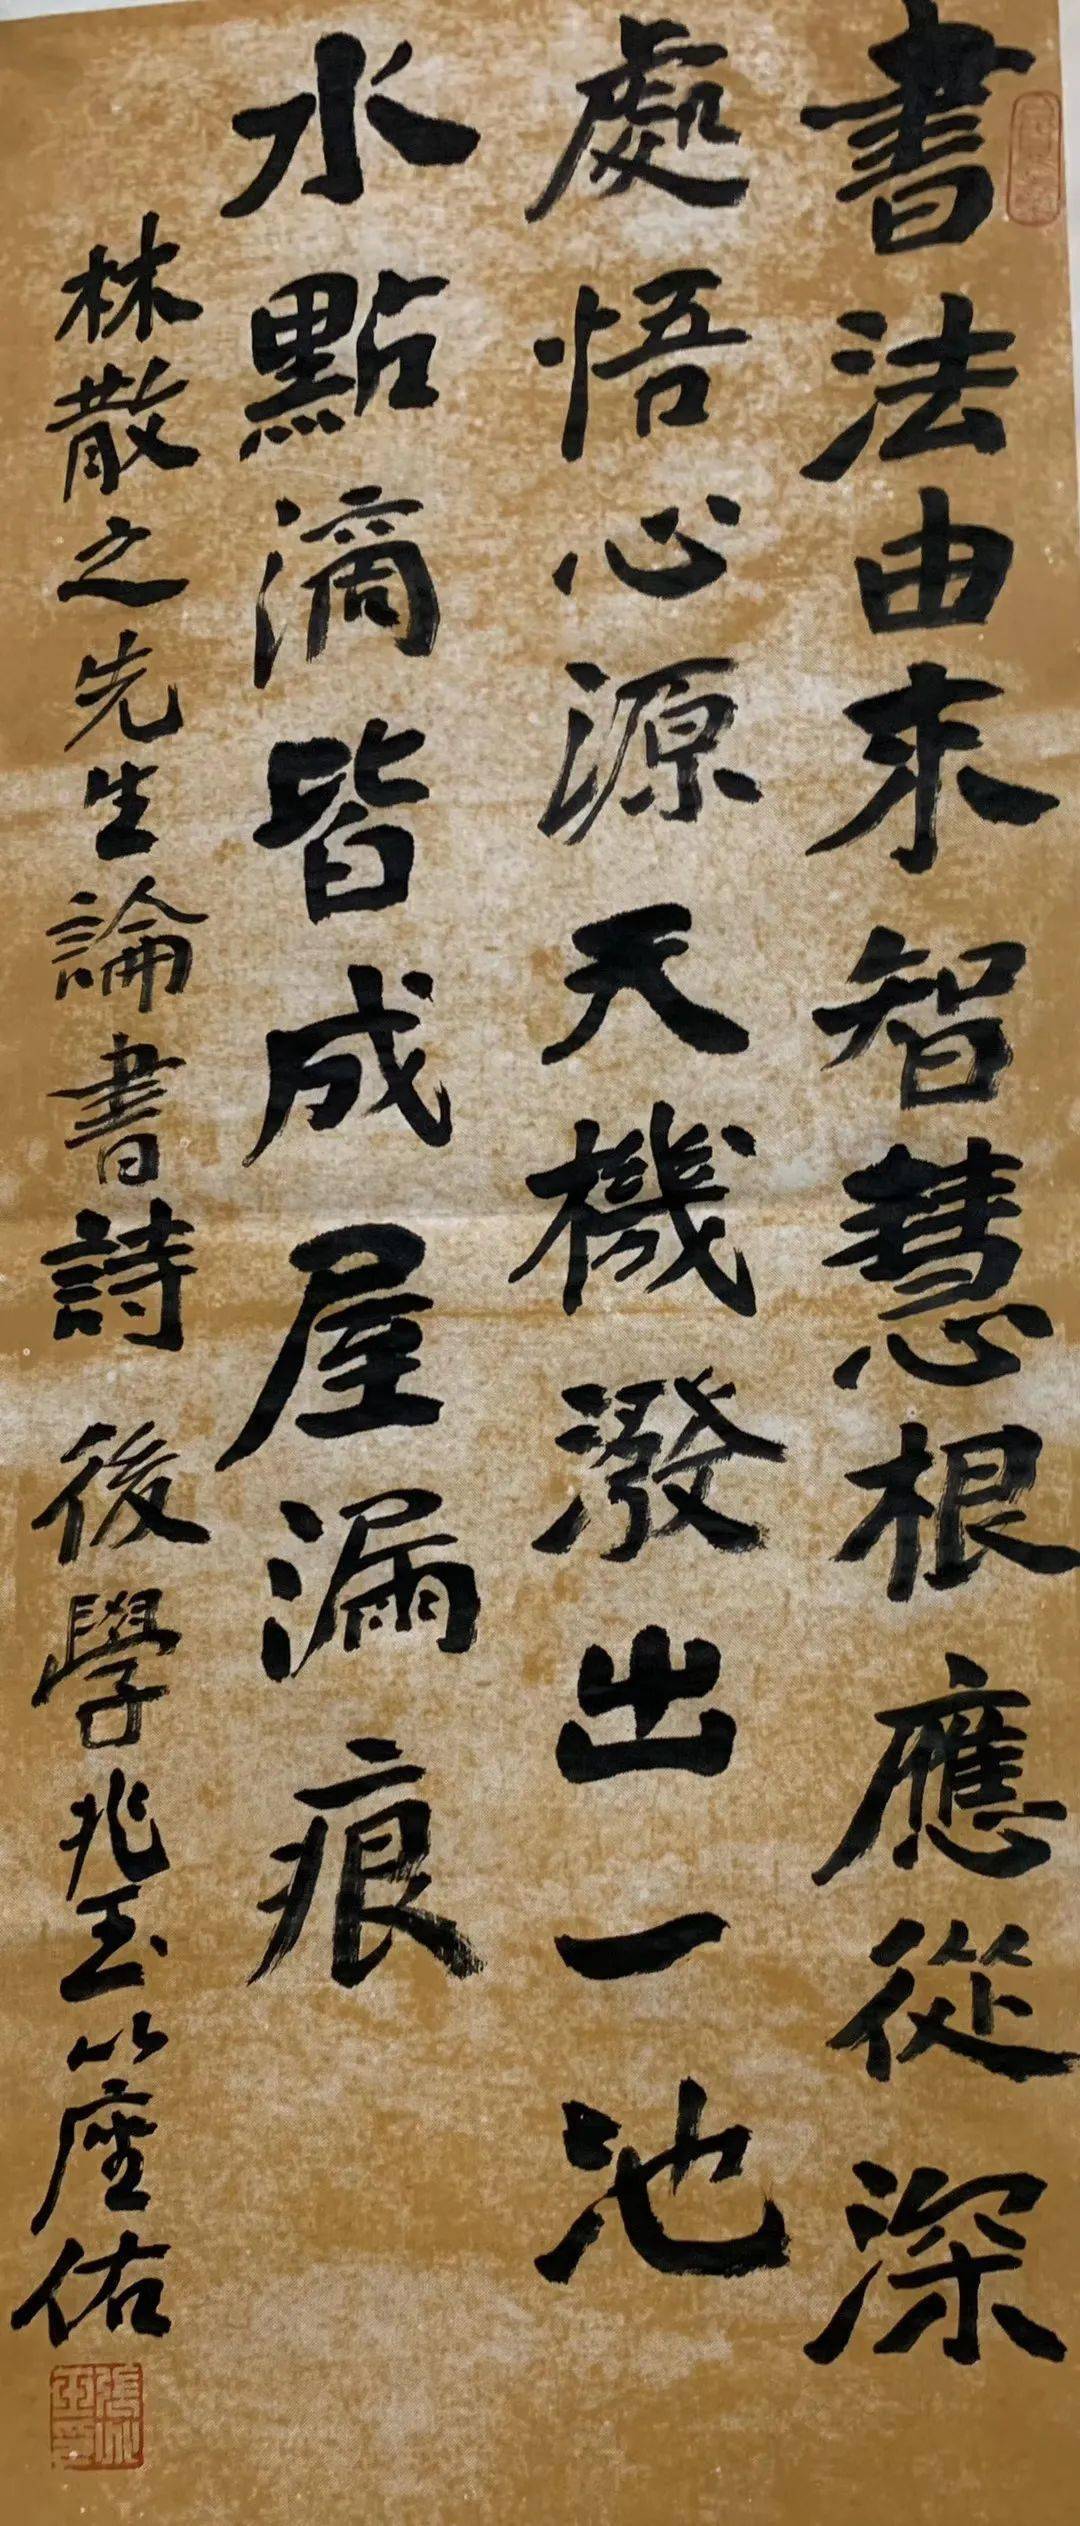 書法由来智慧根應從深
處悟心源天機潑出一池
水點滴皆成屋漏痕
林散之先生論書詩 後學兆玉以座佑
張兆玉印